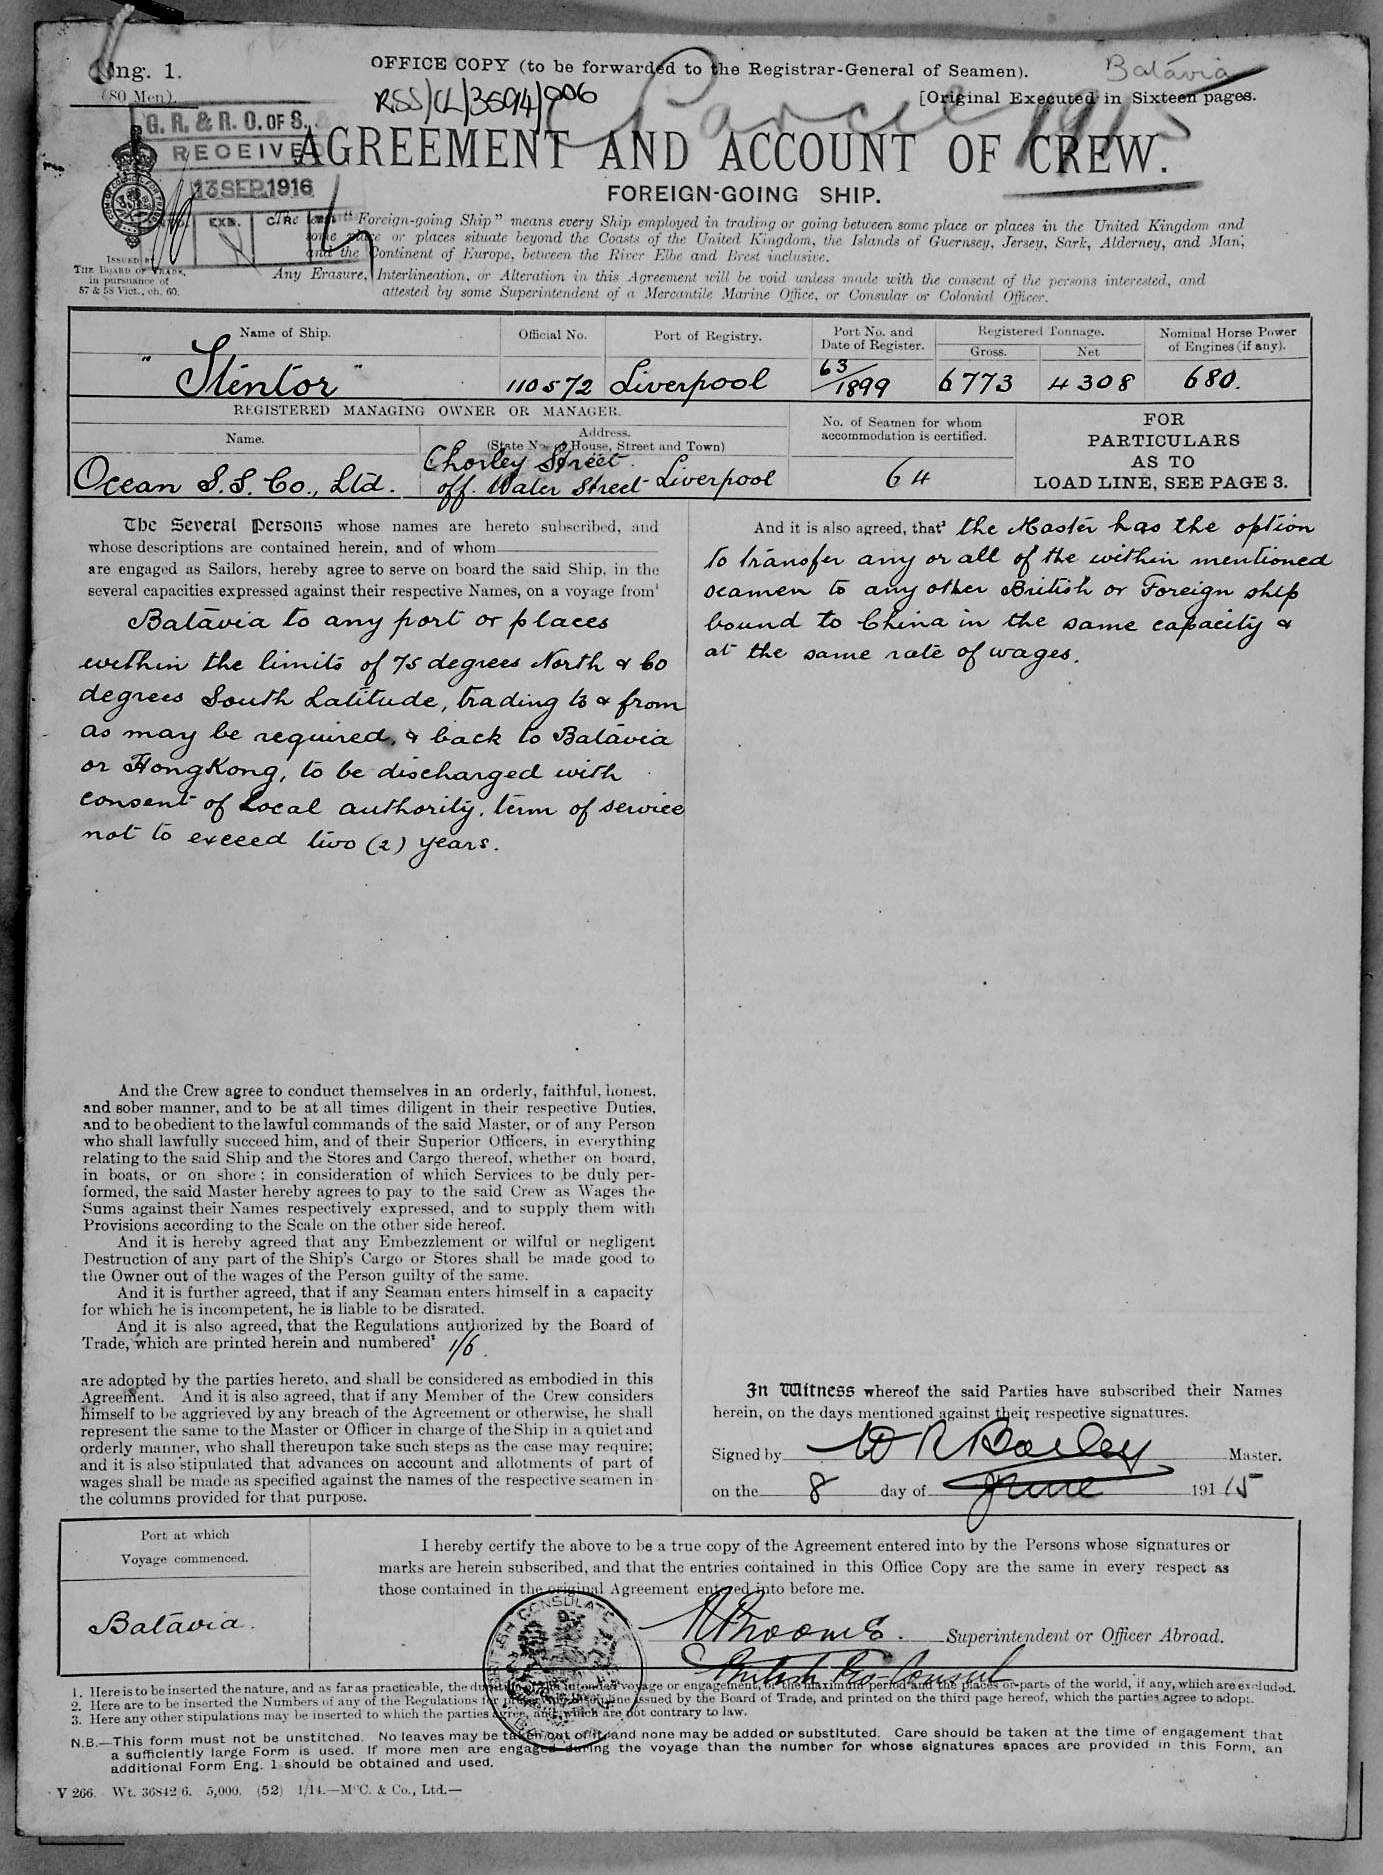 Eng. 1.
(80 Men).
OFFICE COPY (to be forwarded to the Registrar-General of Seamen).
Batavia
[Original Executed in Sixteen pages.
RSS/CL/3594/906
Parcel 1915
G. R. & R. O. OF S.
RECEIVE
13 SEP. 1916
AGREEMENT AND ACCOUNT OF CREW.
FOREIGN-GOING SHIP.
The term "Foreign-going Ship" means every Ship employed in trading or going between some place or places in the United Kingdom and
some place or places situate beyond the Coasts of the United Kingdom, the Islands of Guernsey, Jersey, Sark, Alderney, and Man,
and the Continent of Europe, between the River Elbe and Brest inclusive.
Any Erasure, Interlineation, or Alteration in this Agreement will be void unless made with the consent of the persons interested, and
attested by some Superintendent of a Mercantile Marine Office, or Consular or Colonial Officer.
EXD.
ISSUED BY
THE BOARD OF TRADE,
in pursuance of
57 & 58 Vict., ch. 60.
Name of Ship.
Official No.
Port of Registry.
Port No. and
Date of Register.
Registered Tonnage.
Gross.
Net
Nominal Horse Power
of Engines (if any).
"Stentor"
110572
Liverpool
63/1899
6773
4308
680.
REGISTERED MANAGING OWNER OR MANAGER.
Name.
Address.
(State No. of House, Street and Town)
No. of Seamen for whom
accommodation is certified.
FOR
PARTICULARS
AS TO
LOAD LINE, SEE PAGE 3.
Ocean S.S. Co., Ltd.
Chorley Street
off. Water Street Liverpool
64
The Several Persons whose names are hereto subscribed, and
whose descriptions are contained herein, and of whom
are engaged as Sailors, hereby agree to serve on board the said Ship, in the
several capacities expressed against their respective Names, on a voyage from¹
Batavia to any port or places
within the limits of 75 degrees North & 60
degrees South Latitude, trading to & from
as may be required, & back to Batavia
or HongKong, to be discharged with
consent of Local authority. term of service
not to exceed two (2) years.
And the Crew agree to conduct themselves in an orderly, faithful, honest,
and sober manner, and to be at all times diligent in their respective Duties,
and to be obedient to the lawful commands of the said Master, or of any Person
who shall lawfully succeed him, and of their Superior Officers, in everything
relating to the said Ship and the Stores and Cargo thereof, whether on board,
in boats, or on shore; in consideration of which Services to be duly per-
formed, the said Master hereby agrees to pay to the said Crew as Wages the
Sums against their Names respectively expressed, and to supply them with
Provisions according to the Scale on the other side hereof.
And it is hereby agreed that any Embezzlement or wilful or negligent
Destruction of any part of the Ship's Cargo or Stores shall be made good to
the Owner out of the wages of the Person guilty of the same.
And it is further agreed, that if any Seaman enters himself in a capacity
for which he is incompetent, he is liable to be disrated.
And it is also agreed, that the Regulations authorized by the Board of
Trade, which are printed herein and numbered² 1/6.
are adopted by the parties hereto, and shall be considered as embodied in this
Agreement. And it is also agreed, that if any Member of the Crew considers
himself to be aggrieved by any breach of the Agreement or otherwise, he shall
represent the same to the Master or Officer in charge of the Ship in a quiet and
orderly manner, who shall thereupon take such steps as the case may require;
and it is also stipulated that advances on account and allotments of part of
wages shall be made as specified against the names of the respective seamen in
the columns provided for that purpose.
And it is also agreed, that³ the Master has the option
to transfer any or all of the within mentioned
seamen to any other British or Foreign ship
bound to China in the same capacity &
at the same rate of wages.
In Witness whereof the said Parties have subscribed their Names
herein, on the days mentioned against their respective signatures.
Signed by W R Bailey Master.
on the 8 day of June 1915
Port at which
Voyage commenced.
Batavia.
I hereby certify the above to be a true copy of the Agreement entered into by the Persons whose signatures or
marks are herein subscribed, and that the entries contained in this Office Copy are the same in every respect as
those contained in the original Agreement entered into before me.
Superintendent or Officer Abroad.
British Consul
BRITISH CONSULATE
1. Here is to be inserted the nature, and as far as practicable, the duration of the intended voyage or engagement, or the maximum period and the places or parts of the world, if any, which are excluded.
2. Here are to be inserted the Numbers of any of the Regulations for preserving discipline issued by the Board of Trade, and printed on the third page hereof, which the parties agree to adopt.
3. Here any other stipulations may be inserted to which the parties agree, and which are not contrary to law.
N.B.—This form must not be unstitched. No leaves may be taken out of it, and none may be added or substituted. Care should be taken at the time of engagement that
a sufficiently large Form is used. If more men are engaged during the voyage than the number for whose signatures spaces are provided in this Form, an
additional Form Eng. 1 should be obtained and used.
V 266. Wt. 36842/6. 5,000. (52) 1/14.—McC. & Co., Ltd.—